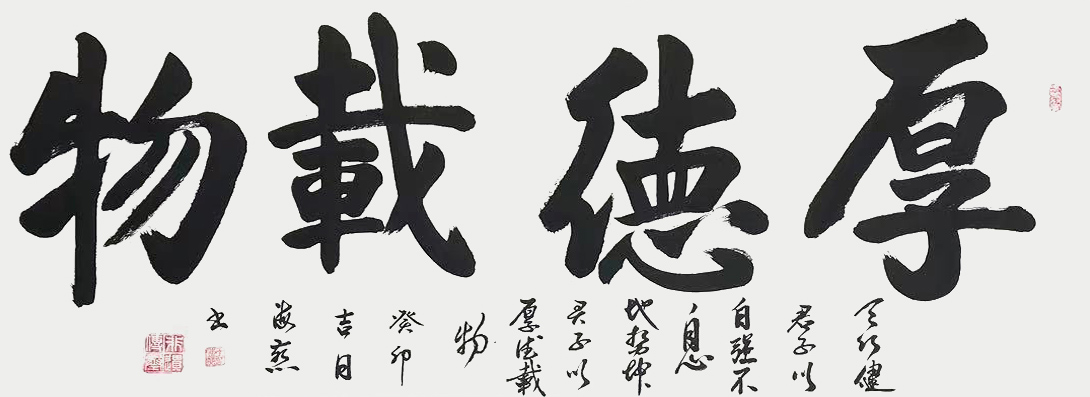 厚德載物
天行健
君子以
自强不
息
地势坤
君子以
厚德載
物
癸卯
吉目
海燕
书